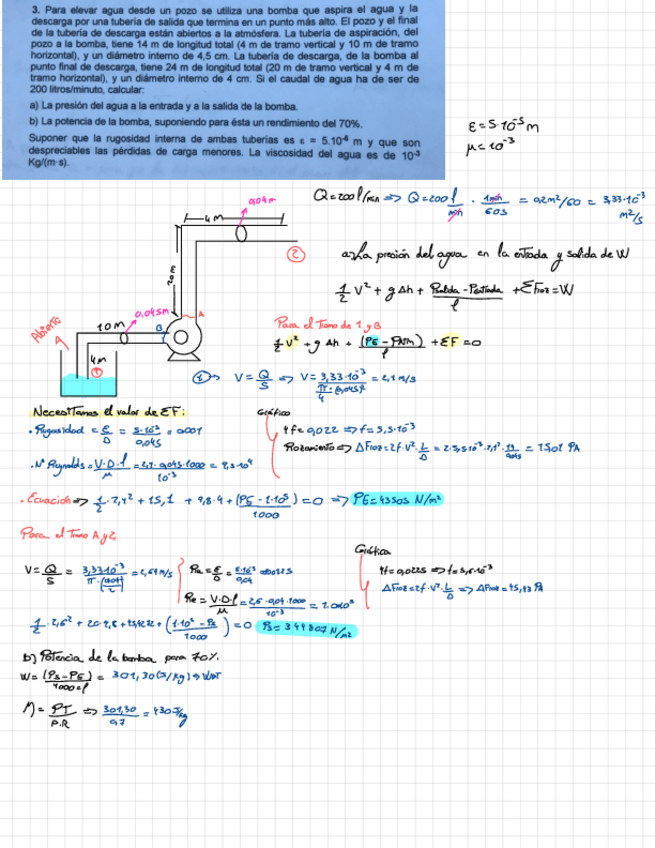 3. Para elevar agua desde un pozo se utiliza una bomba que aspira el agua y la
descarga por una tubería de salida que termina en un punto más alto. El pozo y el final
de la tubería de descarga están abiertos a la atmósfera. La tubería de aspiración, del
pozo a la bomba, tiene 14 m de longitud total (4 m de tramo vertical y 10 m de tramo
horizontal), y un diámetro interno de 4,5 cm. La tubería de descarga, de la bomba al
punto final de descarga, tiene 24 m de longitud total (20 m de tramo vertical y 4 m de
tramo horizontal), y un diámetro interno de 4 cm. Si el caudal de agua ha de ser de
200 litros/minuto, calcular:
a) La presión del agua a la entrada y a la salida de la bomba.
b) La potencia de la bomba, suponiendo para ésta un rendimiento del 70%.
Suponer que la rugosidad interna de ambas tuberías es ε = 5.10⁻⁵ m y que son
despreciables las pérdidas de carga menores. La viscosidad del agua es de 10⁻³
Kg/(m·s).
ε = 5·10⁻⁵ m
μ = 10⁻³
Q = 200 l/min => Q = 200 l/min · 1min/60s = 0,2 m³/60 = 3,33·10⁻³ m³/s
0,04m
4m
20m
2
a) La presión del agua en la entrada y salida de W
1/2 V² + gΔh + (Psalida - Pentrada)/ρ + ΣFroz = W
Abierto
10m
0,045m
A
B
4m
1
Para el Tramo de 1 y B
1/2 V² + g Δh + (PE - PATM)/ρ + ΣF = 0
1 V = Q/S => V = 3,33·10⁻³ / (π/4 · (0,045)²) = 2,1 m/s
Necesitamos el valor de ΣF:
· Rugosidad = ε/D = 5·10⁻⁵/0,045 = 0,001
· Nº Reynolds = V·D·ρ/μ = 2,1·0,045·1000/10⁻³ = 9,3·10⁴
Gráfico
4f = 0,022 => f = 5,5·10⁻³
Rozamiento => ΔFroz = 2f·V²·L/D = 2·5,5·10⁻³·2,1²·14/0,045 = 15,01 PA
· Ecuación => 1/2·2,1² + 15,1 + 9,8·4 + (PE - 1·10⁵)/1000 = 0 => PE = 43505 N/m²
Para el Tramo A y 2
V = Q/S = 3,33·10⁻³ = 2,64 m/s
Re = V·D·ρ/μ = 2,6·0,04·1000/10⁻³
Gráfica
4f = 0,0225 => f = 5,6·10⁻³
ΔFroz = 2f·V²·L/D => ΔFroz = 45,93 PA
Ps = 344807 N/m²
b) Potencia de la bomba para 70%.
W = (Ps - PE)/1000=ρ = 301,30 (J/kg)
η = PT/P.R => 301,30/0,7 = 430 J/kg